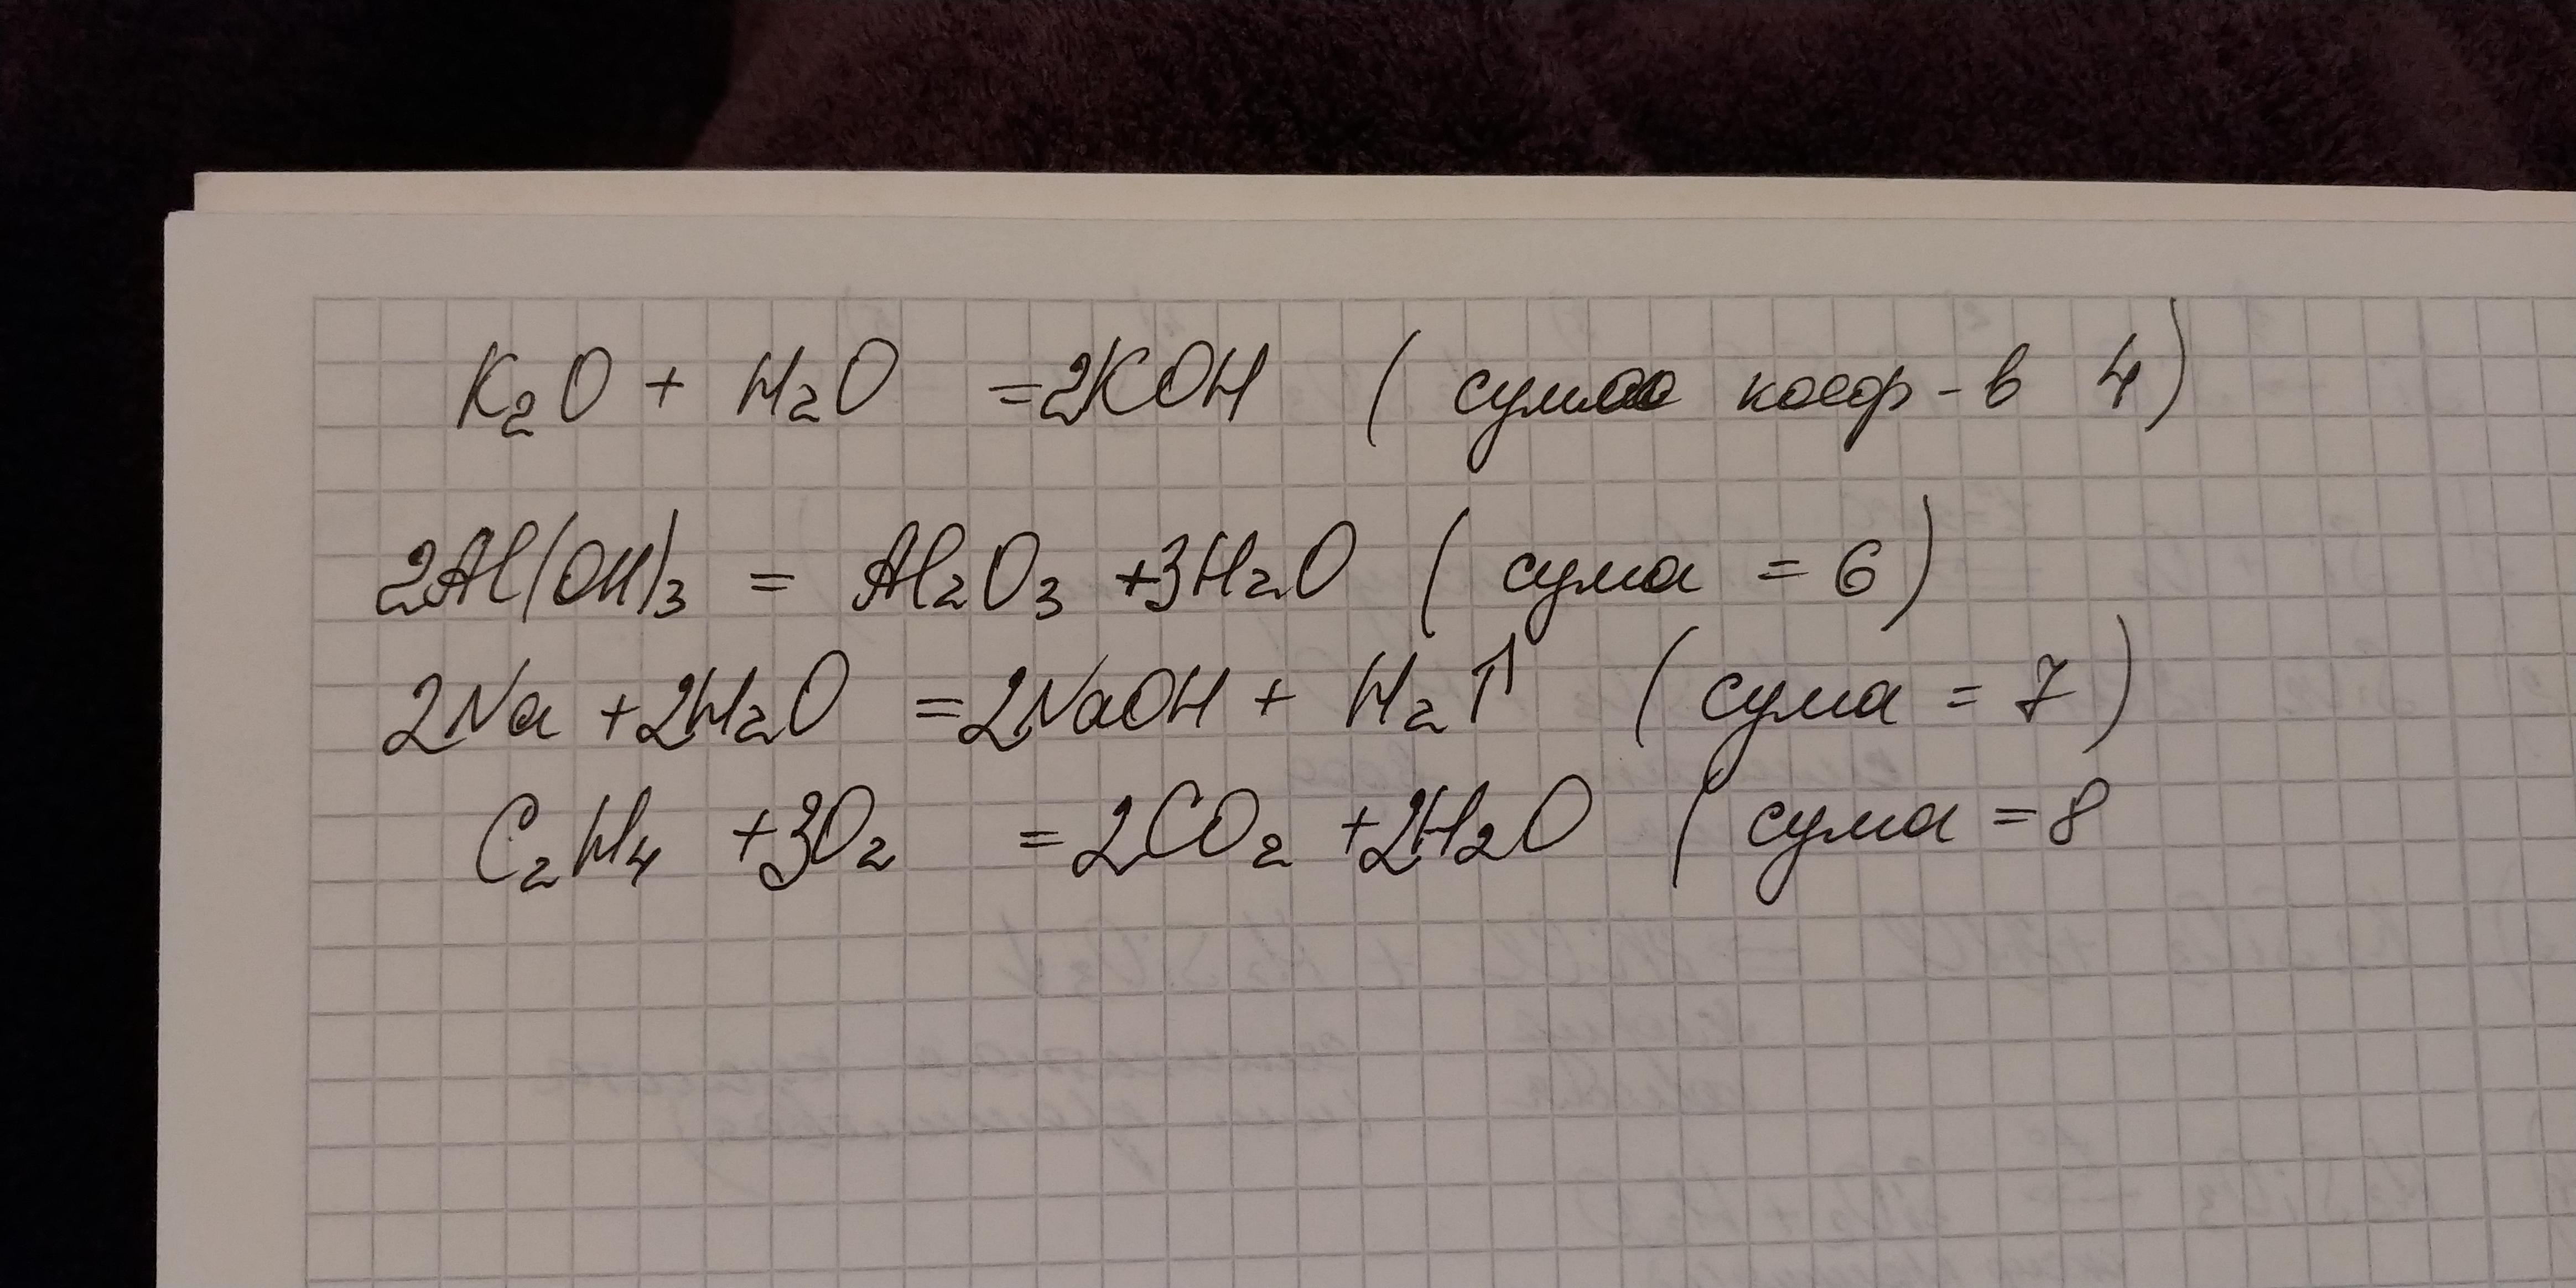 K₂O + H₂O = 2KOH ( сума коеф-в 4)
2Al(OH)₃ = Al₂O₃ +3H₂O ( сума = 6)
2Na +2H₂O = 2NaOH + H₂↑ ( сума = 7)
C₂H₄ +3O₂ = 2CO₂ +2H₂O ( сума = 8